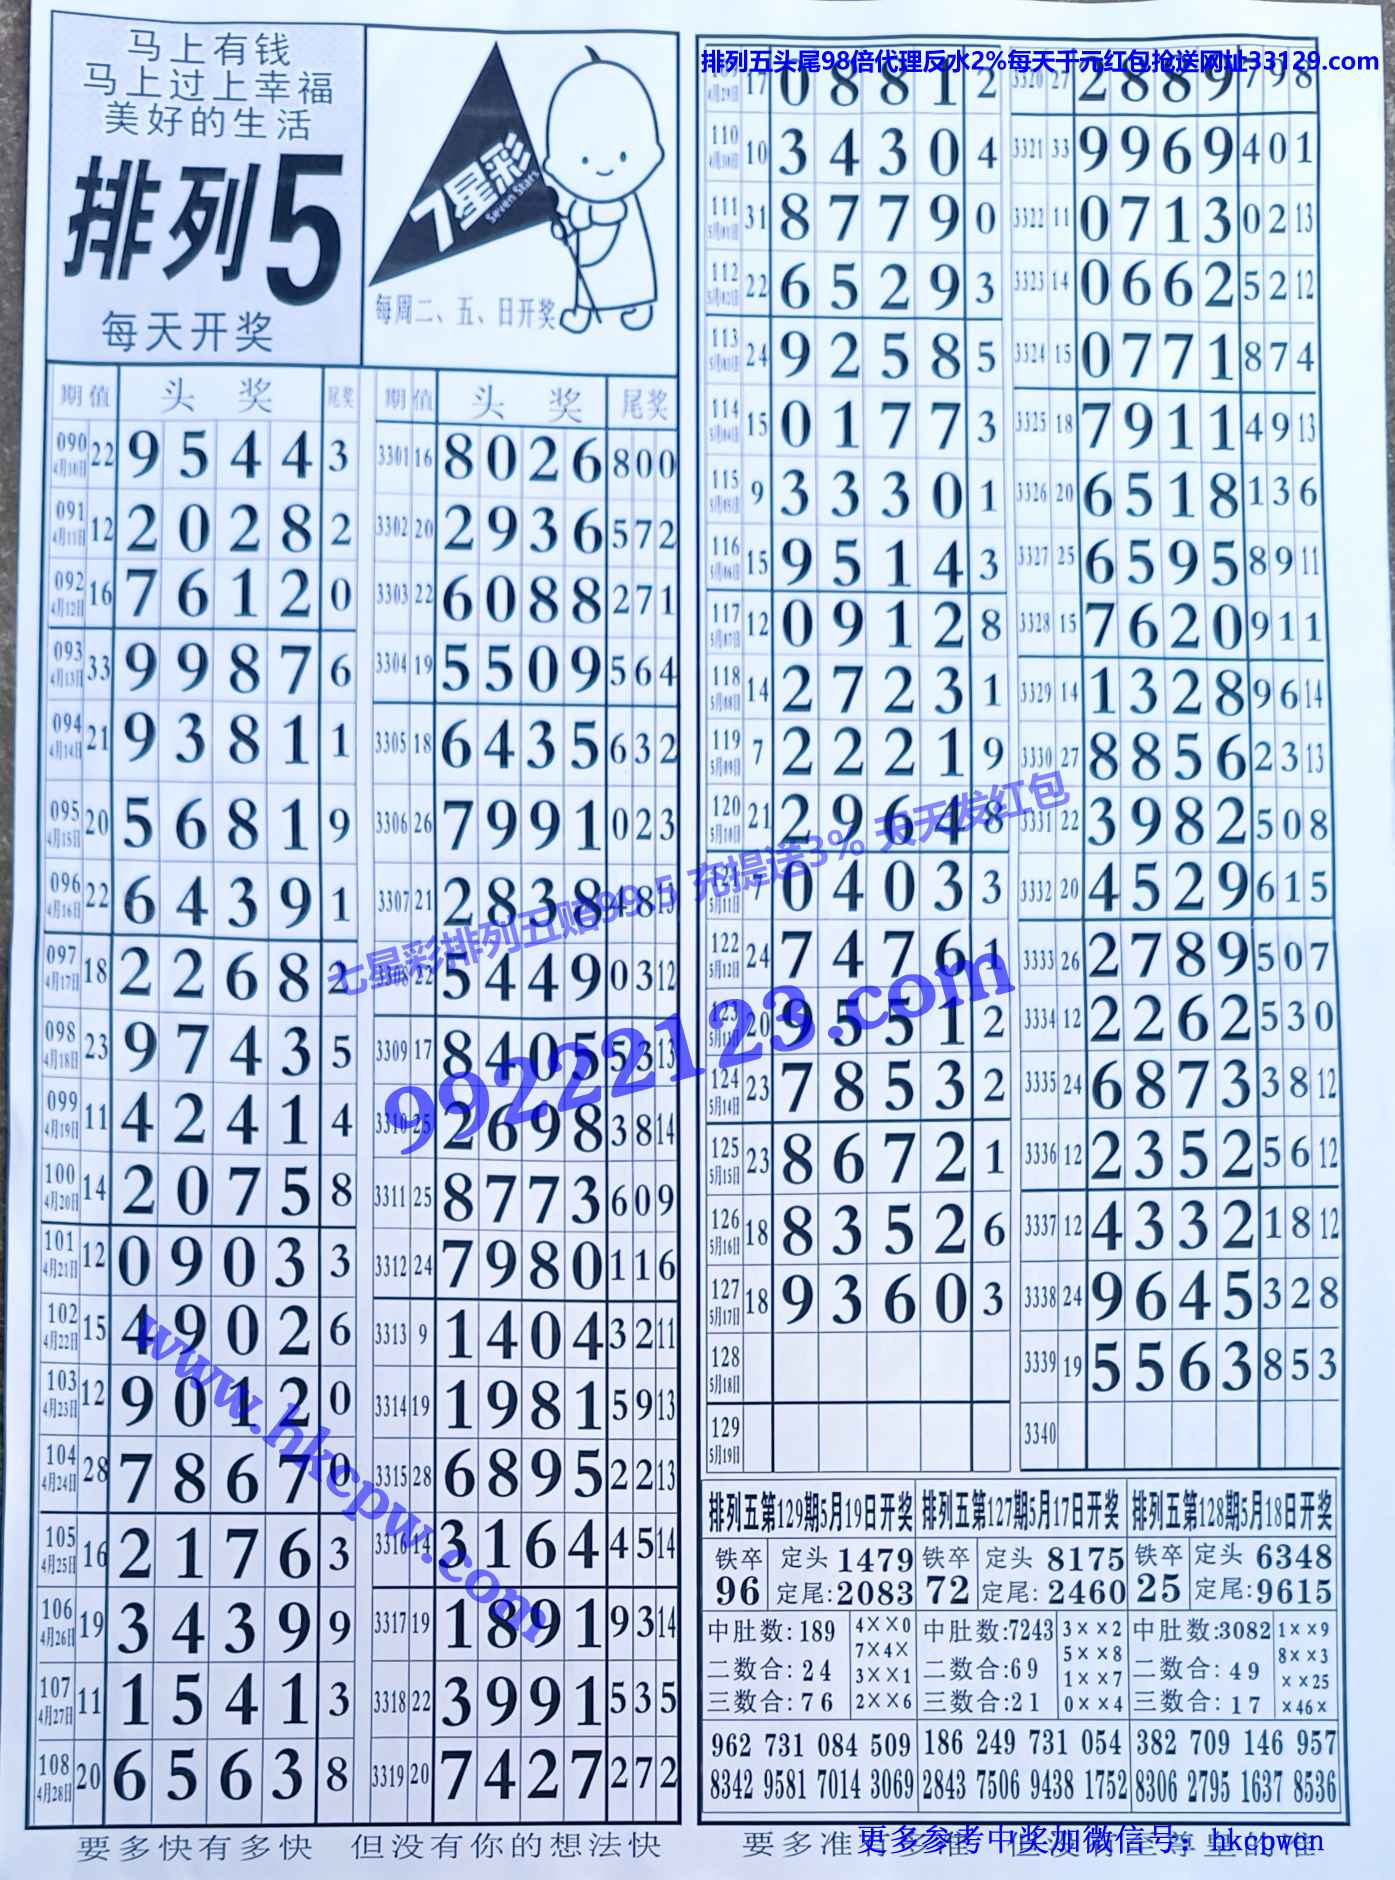 马上有钱
马上过上幸福
美好的生活
排列5
每天开奖
7星彩
Seven Stars
每周二、五、日开奖
期 值 头 奖 尾奖
090 4月10日 22 9 5 4 4 3
091 4月11日 12 2 0 2 8 2
092 4月12日 16 7 6 1 2 0
093 4月13日 33 9 9 8 7 6
094 4月14日 21 9 3 8 1 1
095 4月15日 20 5 6 8 1 9
096 4月16日 22 6 4 3 9 1
097 4月17日 18 2 2 6 8 2
098 4月18日 23 9 7 4 3 5
099 4月19日 11 4 2 4 1 4
100 4月20日 14 2 0 7 5 8
101 4月21日 12 0 9 0 3 3
102 4月22日 15 4 9 0 2 6
103 4月23日 12 9 0 1 2 0
104 4月24日 28 7 8 6 7 0
105 4月25日 16 2 1 7 6 3
106 4月26日 19 3 4 3 9 9
107 4月27日 11 1 5 4 1 3
108 4月28日 20 6 5 6 3 8
期 值 头 奖 尾奖
3301 16 8 0 2 6 8 0 0
3302 20 2 9 3 6 5 7 2
3303 22 6 0 8 8 2 7 1
3304 19 5 5 0 9 5 6 4
3305 18 6 4 3 5 6 3 2
3306 26 7 9 9 1 0 2 3
3307 21 2 8 3 8 4 8
3308 22 5 4 4 9 0 3 12
3309 17 8 4 0 5 5 3 13
3310 25 2 6 9 8 3 8 14
3311 25 8 7 7 3 6 0 9
3312 24 7 9 8 0 1 1 6
3313 9 1 4 0 4 3 2 11
3314 19 1 9 8 1 5 9 13
3315 28 6 8 9 5 2 2 13
3316 14 3 1 6 4 4 5 14
3317 19 1 8 9 1 9 3 14
3318 22 3 9 9 1 5 3 5
3319 20 7 4 2 7 2 7 2
要多快有多快 但没有你的想法快
排列五头尾98倍代理反水2%每天千元红包抢送网址33129.com
109 4月29日 17 0 8 8 1 2
110 4月30日 10 3 4 3 0 4
111 5月01日 31 8 7 7 9 0
112 5月02日 22 6 5 2 9 3
113 5月03日 24 9 2 5 8 5
114 5月04日 15 0 1 7 7 3
115 5月05日 9 3 3 3 0 1
116 5月06日 15 9 5 1 4 3
117 5月07日 12 0 9 1 2 8
118 5月08日 14 2 7 2 3 1
119 5月09日 7 2 2 2 1 9
120 5月10日 21 2 9 6 4 8
121 5月11日 7 0 4 0 3 3
122 5月12日 24 7 4 7 6 1
123 5月13日 20 9 5 5 1 2
124 5月14日 23 7 8 5 3 2
125 5月15日 23 8 6 7 2 1
126 5月16日 18 8 3 5 2 6
127 5月17日 18 9 3 6 0 3
128 5月18日
129 5月19日
3320 27 2 8 8 9 7 9 8
3321 33 9 9 6 9 4 0 1
3322 11 0 7 1 3 0 2 13
3323 14 0 6 6 2 5 2 12
3324 15 0 7 7 1 8 7 4
3325 18 7 9 1 1 4 9 13
3326 20 6 5 1 8 1 3 6
3327 25 6 5 9 5 8 9 11
3328 15 7 6 2 0 9 1 1
3329 14 1 3 2 8 9 6 14
3330 27 8 8 5 6 2 3 13
3331 22 3 9 8 2 5 0 8
3332 20 4 5 2 9 6 1 5
3333 26 2 7 8 9 5 0 7
3334 12 2 2 6 2 5 3 0
3335 24 6 8 7 3 3 8 12
3336 12 2 3 5 2 5 6 12
3337 12 4 3 3 2 1 8 12
3338 24 9 6 4 5 3 2 8
3339 19 5 5 6 3 8 5 3
3340
排列五第129期5月19日开奖
铁卒 96 定头 1479
定尾:2083
中肚数:189
二数合:24
三数合:76
4××0
7×4×
3××1
2××6
962 731 084 509
8342 9581 7014 3069
排列五第127期5月17日开奖
铁卒 72 定头 8175
定尾:2460
中肚数:7243
二数合:69
三数合:21
3××2
5××8
1××7
0××4
186 249 731 054
2843 7506 9438 1752
排列五第128期5月18日开奖
铁卒 25 定头 6348
定尾:9615
中肚数:3082
二数合:49
三数合:17
1××9
8××3
××25
×46×
382 709 146 957
8306 2795 1637 8536
更多参考中奖加微信号：hkcpwcn
七星彩排列五赔99.5 充提送3% 天天发红包
99222123.com
www.hkcpw.com